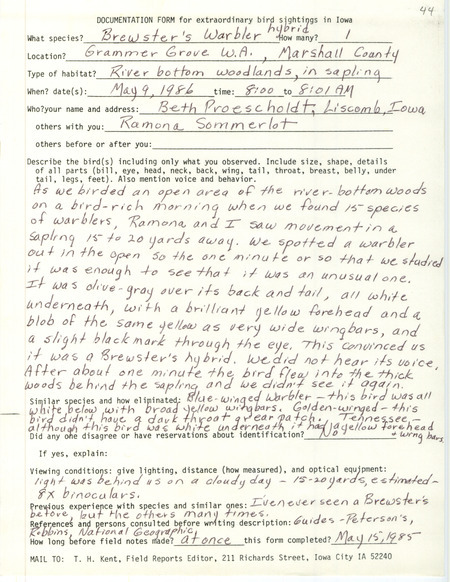 44
DOCUMENTATION FORM for extraordinary bird sightings in Iowa
What species? Brewster's Warbler hybrid How many? 1
Location? Grammer Grove W.A., Marshall County
Type of habitat? River bottom woodlands, in sapling
When? date(s): May 9, 1986 time: 8:00 to 8:01 AM
Who?your name and address: Beth Proescholdt, Liscomb, Iowa
others with you: Ramona Sommerlot
others before or after you:
Describe the bird(s) including only what you observed. Include size, shape, details
of all parts (bill, eye, head, neck, back, wing, tail, throat, breast, belly, under
tail, legs, feet). Also mention voice and behavior.
As we birded an open area of the river-bottom woods
on a bird-rich morning when we found 15 species
of warblers, Ramona and I saw movement in a
sapling 15 to 20 yards away. We spotted a warbler
out in the open so the one minute or so that we studied
it was enough to see that it was an unusual one.
It was olive-gray over its back and tail, all white
underneath, with a brilliant yellow forehead and a
blob of the same yellow as very wide wingbars, and
a slight black mark through the eye. This convinced us
it was a Brewster's hybrid. We did not hear its voice.
After about one minute the bird flew into the thick
woods behind the sapling and we didn't see it again.
Similar species and how eliminated: Blue-winged Warbler - this bird was all
white below with broad yellow wingbars. Golden-winged - this
bird didn't have a dark throat or ear patch. Tennessee -
although this bird was white underneath it had a yellow forehead
+ wing bars
Did any one disagree or have reservations about identification? No
If yes, explain:
Viewing conditions: give lighting, distance (how measured), and optical equipment:
light was behind us on a cloudy day - 15-20 yards, estimated -
8X binoculars.
Previous experience with species and similar ones: I've never seen a Brewster's
before, but the others many times.
References and persons consulted before writing description: Guides - Peterson's,
Robbins, National Geographic,
How long before field notes made? at once this form completed? May 15, 1985
MAIL TO: T. H. Kent, Field Reports Editor, 211 Richards Street, Iowa City IA 52240